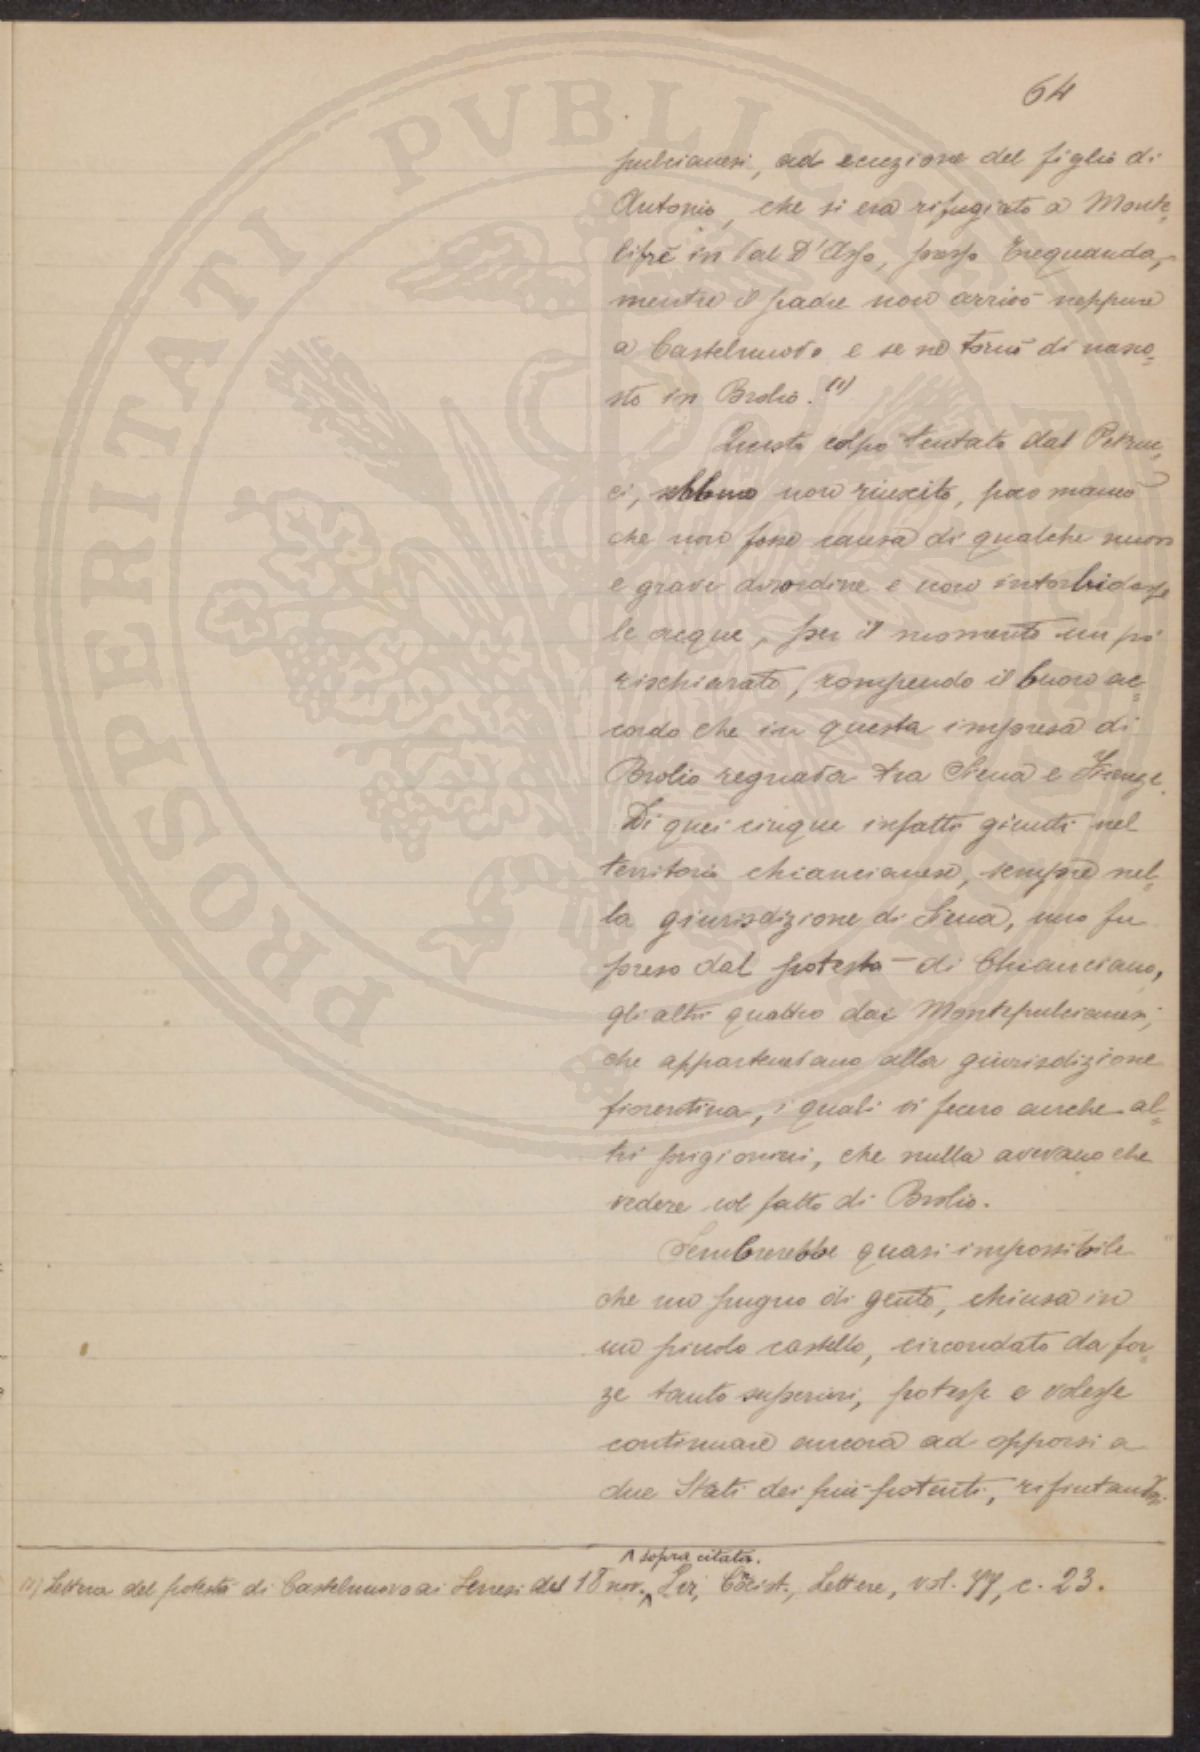 64
pulcianesi, ad eccezione del figlio di
Antonio, che si era rifugiato a Monte-
lifrè in Val D'Asso, presso Trequanda,
mentre il padre non arrivò neppure
a Castelnuovo e se ne tornò di nasco-
sto in Brolio. (1)
Questo colpo tentato dal Petruc-
ci, sebbene non riuscito, poco mancò
che non fosse causa di qualche nuovo
e grave disordine e non intorbidasse
le acque, per il momento un pò
rischiarate, rompendo il buon ac-
cordo che in questa impresa di
Brolio regnava tra Siena e Firenze.
Di quei cinque infatti giunti nel
territorio chiancianese, sempre nel-
la giurisdizione di Siena, uno fu
preso dal potestà di Chianciano,
gli altri quattro dai Montepulcianesi,
che appartenevano alla giurisdizione
fiorentina, i quali vi fecero anche al-
tri prigionieri, che nulla avevano che
vedere col fatto di Brolio.
Sembrerebbe quasi impossibile
che un pugno di gente, chiusa in
un piccolo castello, circondato da for-
ze tanto superiori, potesse e volesse
continuare ancora ad opporsi a
due Stati dei più potenti, rifiutandosi
sopra citata.
(1) Lettera del potestà di Castelnuovo ai Senesi del 18 nov. Ivi, Concist., Lettere, vol. 77, c. 23.
PROSPERITATI PVBLICAE AVGENDAE